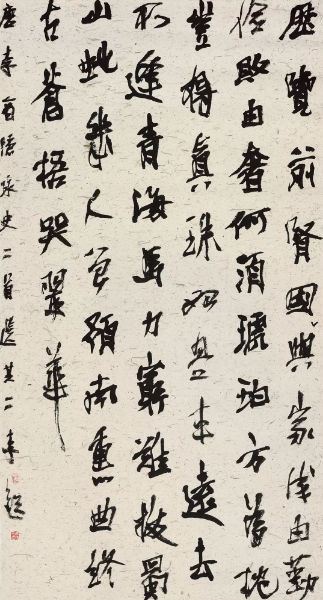 歷覽前賢國與家成由勤
儉敗由奢何須琥珀方為枕
豈得真珠始是車遠去
不逢青海馬力窮難拔蜀
山蛇幾人曾預南熏曲終
古蒼梧哭翠華
唐李商隱詠史二首選其二